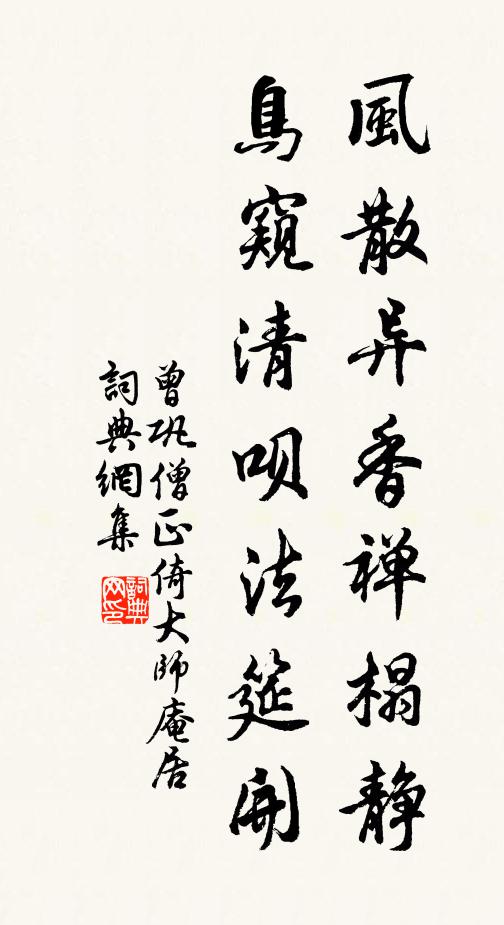 風散异香禅榻静
鳥窺清呗法筵開
曾巩僧正倚大師庵居
詞典網集
詞典网印